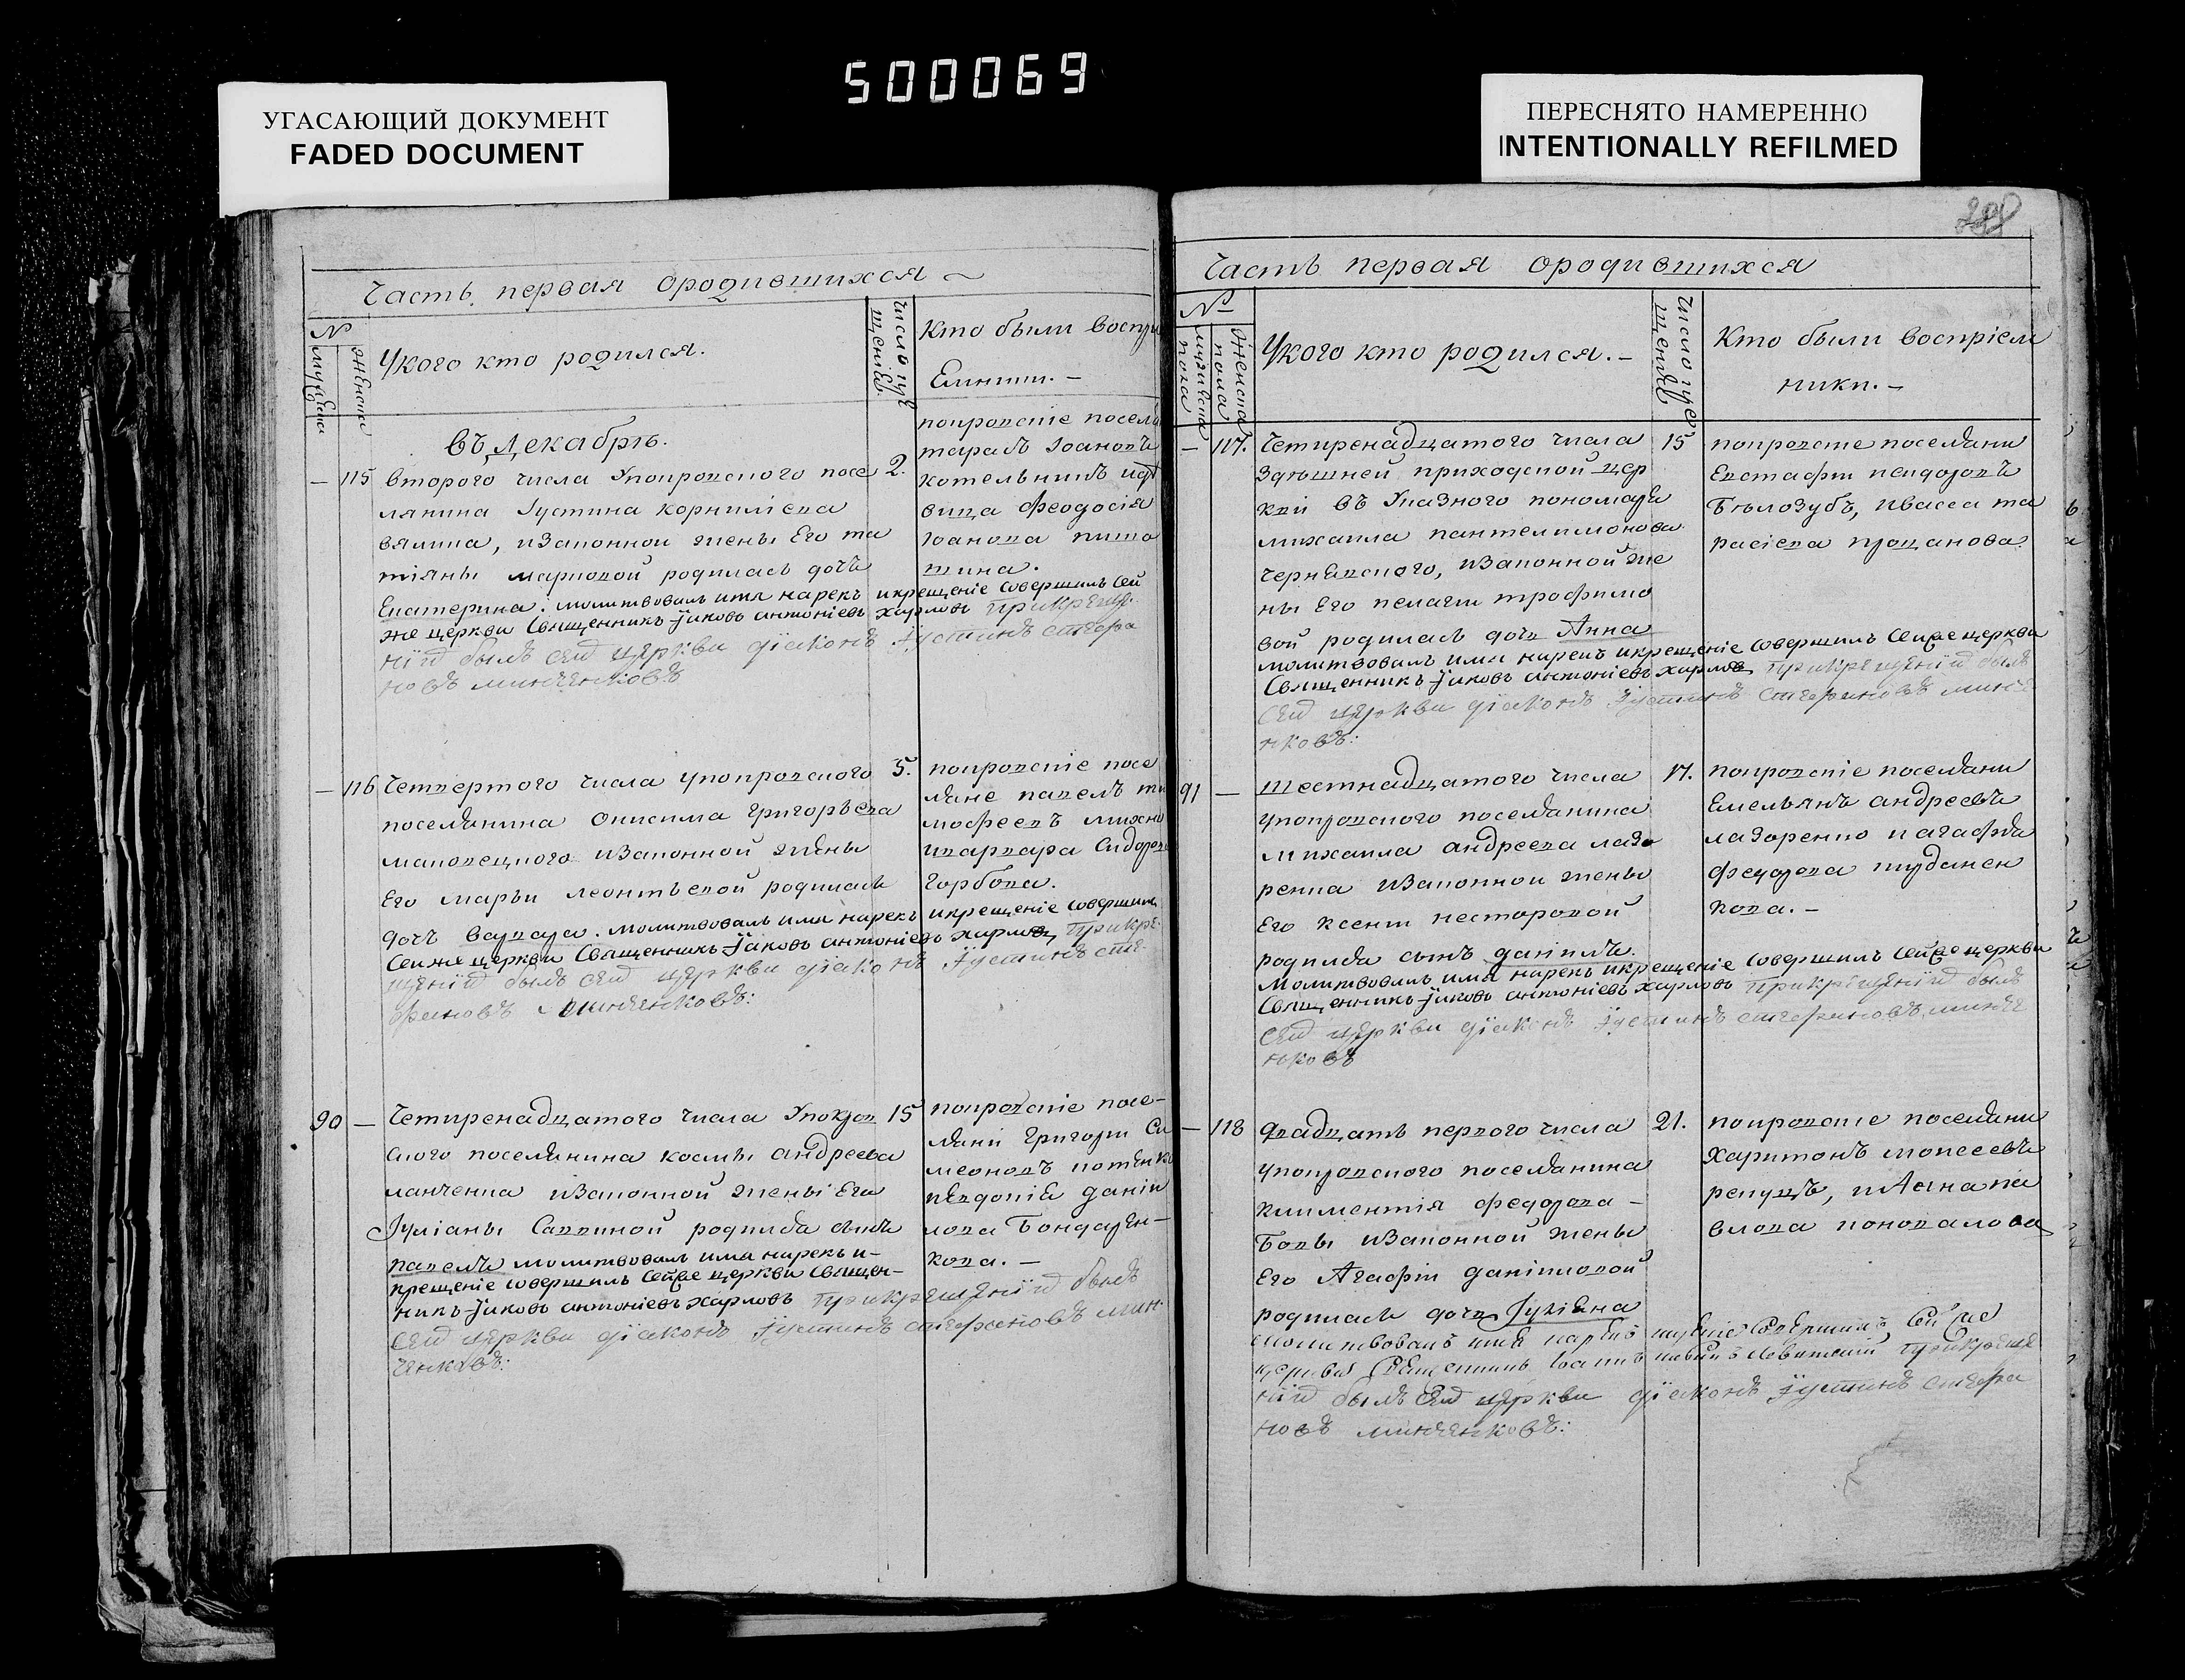 500069
УГАСАЮЩИЙ ДОКУМЕНТ
FADED DOCUMENT
ПЕРЕСНЯТО НАМЕРЕННО
INTENTIONALLY REFILMED
Часть первая ородившихся
№
Укого кто родился.
Кто были воспри
Емники. –
въ декабрѣ.
– 115 второго числа Упокровского посе 2.
лянина Іустина корнилієва
вялина, изаконной жены Его та
тіяны марковой родилась дочь
Екатерина. молитвовалъ имя нарекъ икрещеніе совершилъ сей
же церкви Священникъ Іаковъ антоніевъ харловъ Прикреще
ніи былъ сей церкви діаконъ Іустинъ стефа
новъ минченковъ
покровскіе посела
тарасъ Іоановъ
котельникъ идѣ
вица феодосія
Іоанова
– 116 Четвертого числа упокровского 5.
поселянина онисима григорьева
маковецкого изаконной жены
Его марьи леонтьевой родилась
дочь варвара. молитвовалъ имя нарекъ икрещеніе совершилъ
Сей же церкви Священникъ Іаковъ антоніевъ харловъ Прикре
щеніи былъ сей церкви діаконъ Іустинъ сте
фановъ минченковъ:
покровскіе посе
ляне павелъ ти
мофеевъ михно
иварвара Сидоров
горбова.
90 – Четиренадцатого числа Упокров 15
ского поселянина космы андреева
панченка изаконной жены Его
Іуліаны Саввиной родился сынъ
павелъ молитвовалъ имя нарекъ и–
крещеніе совершилъ сей же церкви Священ–
никъ Іаковъ антоніевъ харловъ Прикрещеніи былъ
сей церкви діаконъ Іустинъ стефановъ мин
ченковъ:
покровскіе посе–
ляни григори Си
меоновъ
иЕвдокіЕ даніи
лова Бондарен–
кова. –
Часть первая ородившихся
№
женска пола
мужеска пола
Укого кто родился. –
Число
Кто были воспріем
ники. –
– 117. Четиренадцатого числа 15
здѣшней приходской цер
кви въ Указного пономаря
михаила пантелимонова
чернявского, изаконной же
ны Его пелагіи трофимо
вой родилась дочь Анна
молитвовалъ имя нарекъ икрещеніе совершилъ сей же церкви
Священникъ Іаковъ антоніевъ харловъ Прикрещеніи былъ
сей церкви діаконъ Іустинъ стефановъ минче
нковъ:
покровскіе поселяни
Евстафіи
Бѣлозубъ, ивасса та
расіева процанова.
91 – шестнадцатого числа 17.
упокровского поселянина
михаила андреева лазо
ренка изаконной жены
Его ксеніи несторовой
родился сынъ даніилъ.
молитвовалъ имя нарекъ икрещеніе совершилъ сей же церкви
Священникъ Іаковъ антоніевъ харловъ Прикрещеніи былъ
сей церкви діаконъ Іустинъ стефановъ минче
нковъ
покровскіе поселяни
Емельянъ андреевъ
лазоренко иагафія
федорова
кова. –
– 118 двадцать первого числа 21.
упокровского поселянина
климентія федорова –
Бобы изаконной жены
Его Агафіи даниловой
родилась дочь Іуліяна
молитвовалъ имя нарекъ икрещеніе совершилъ сей же
церкви Священникъ Іоаннъ Левитскій Прикреще
ніи былъ сей церкви діаконъ Іустинъ стефа
новъ минченковъ:
покровскіе поселяни
харитонъ моисеевъ
репуцъ, иАнна па
влова коновалова